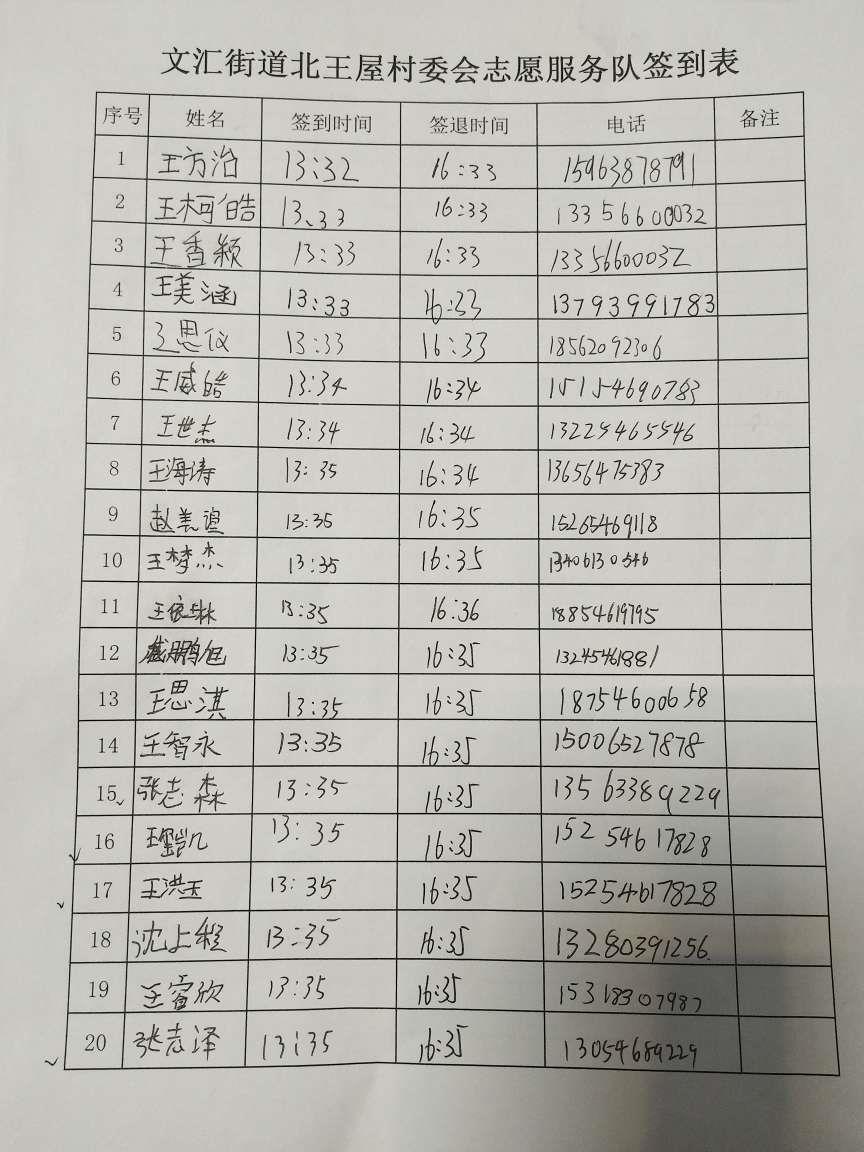 文汇街道北王屋村委会志愿服务队签到表
序号 姓名 签到时间 签退时间 电话 备注
1 王方治 13:32 16:33 15963878791
2 王柯皓 13.33 16:33 13356600032
3 王香颖 13:33 16:33 13356600032
4 王美涵 13:33 16:33 13793991783
5 王思仪 13:33 16:33 18562092306
6 王威皓 13:34 16:34 15154690783
7 王世杰 13:34 16:34 13225465546
8 王海涛 13:35 16:34 13656475383
9 赵美谊 13:35 16:35 15265469118
10 王梦杰 13:35 16:35 13406130546
11 13:35 16:36 18854619795
12 盛鹏旭 13:35 16:35 13245461881
13 王思淇 13:35 16:35 18754600658
14 王智永 13:35 16:35 15006527878
15 张志森 13:35 16:35 13563389229
16 13:35 16:35 15254617828
17 王洪玉 13:35 16:35 15254617828
18 沈上程 13:35 16:35 13280391256
19 王睿欣 13:35 16:35 15318307987
20 张志泽 13:35 16:35 13054689229